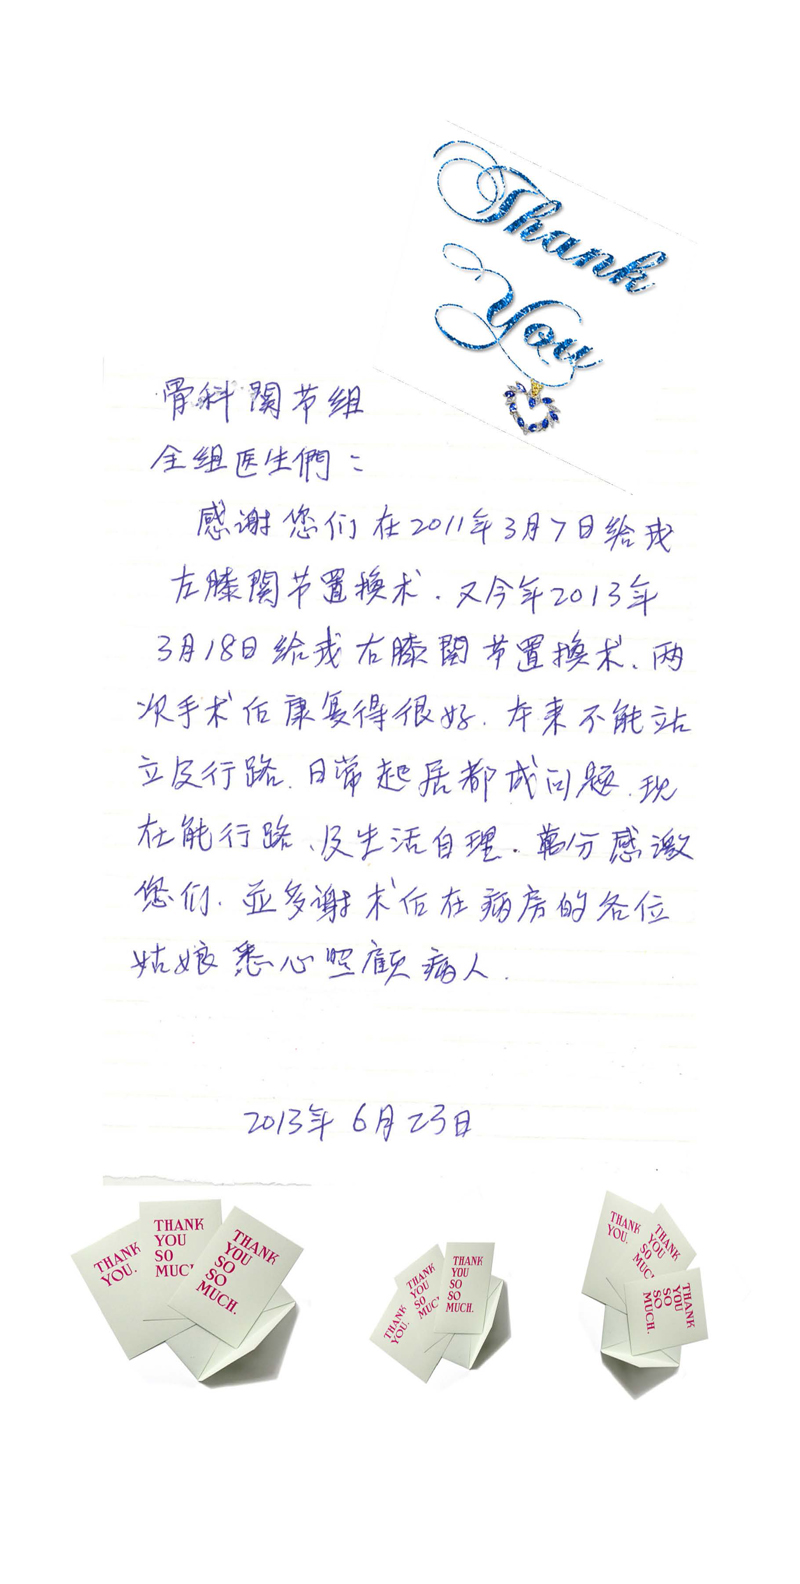 Thank
You
骨科関节组
全组医生們：
感谢您们在2011年3月7日给我
左膝関节置换术．又今年2013年
3月18日给我右膝関节置换术、两
次手术后康复得很好．本来不能站
立及行路、日常起居都成问题、现
在能行路、及生活自理．萬分感激
您们．並多谢术后在病房的各位
姑娘悉心照顧病人．
2013年6月23日
THANK
YOU.
THANK
YOU
SO
MUC
THANK
YOU
SO
SO
MUCH.
THANK
YOU.
THANK
YOU
SO
MUC
THANK
YOU
SO
SO
MUCH.
THANK
YOU.
THANK
YOU
SO
MUC
THANK
YOU
SO
SO
MUCH.